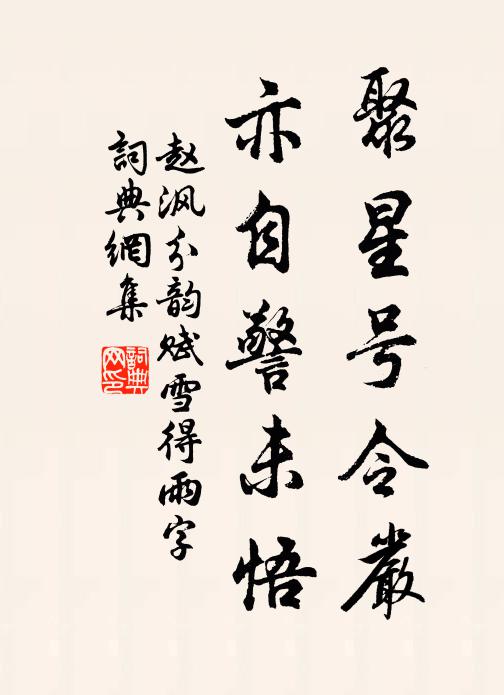 聚星号令嚴
亦自警未悟
赵沨分韵赋雪得雨字
詞典網集
詞典网印